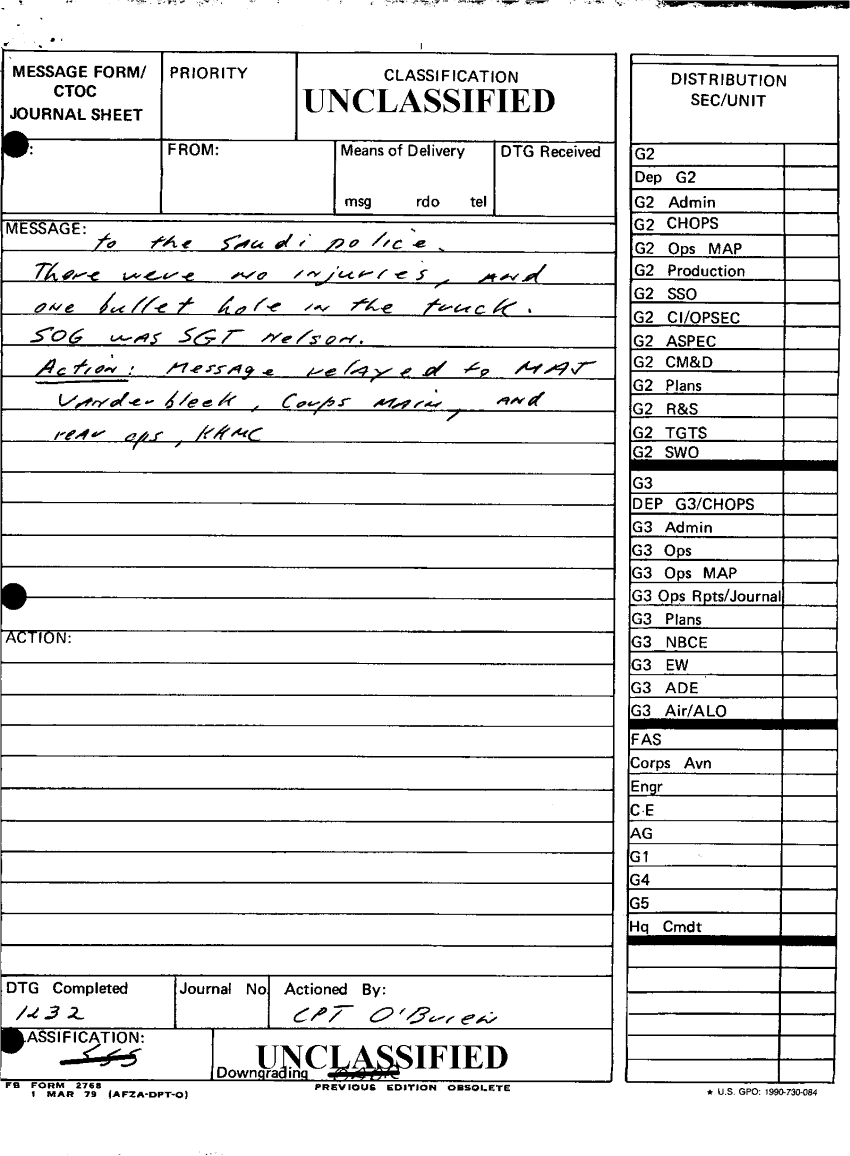 MESSAGE FORM/
CTOC
JOURNAL SHEET
PRIORITY
CLASSIFICATION
UNCLASSIFIED
:
FROM:
Means of Delivery
msg rdo tel
DTG Received
MESSAGE:
to the Saudi police.
There were no injuries, and
one bullet hole in the truck.
SOG was SGT Nelson.
Action: Message relayed to MAJ
Vanderbleek, Corps MAIN, and
rear ops, KKMC
ACTION:
DTG Completed
1232
Journal No.
Actioned By:
CPT O'Brien
LASSIFICATION:
UNCLASSIFIED
Downgrading
FB FORM 2768
1 MAR 79 (AFZA-DPT-O)
PREVIOUS EDITION OBSOLETE
DISTRIBUTION
SEC/UNIT
G2
Dep G2
G2 Admin
G2 CHOPS
G2 Ops MAP
G2 Production
G2 SSO
G2 CI/OPSEC
G2 ASPEC
G2 CM&D
G2 Plans
G2 R&S
G2 TGTS
G2 SWO
G3
DEP G3/CHOPS
G3 Admin
G3 Ops
G3 Ops MAP
G3 Ops Rpts/Journal
G3 Plans
G3 NBCE
G3 EW
G3 ADE
G3 Air/ALO
FAS
Corps Avn
Engr
C-E
AG
G1
G4
G5
Hq Cmdt
★ U.S. GPO: 1990-730-084